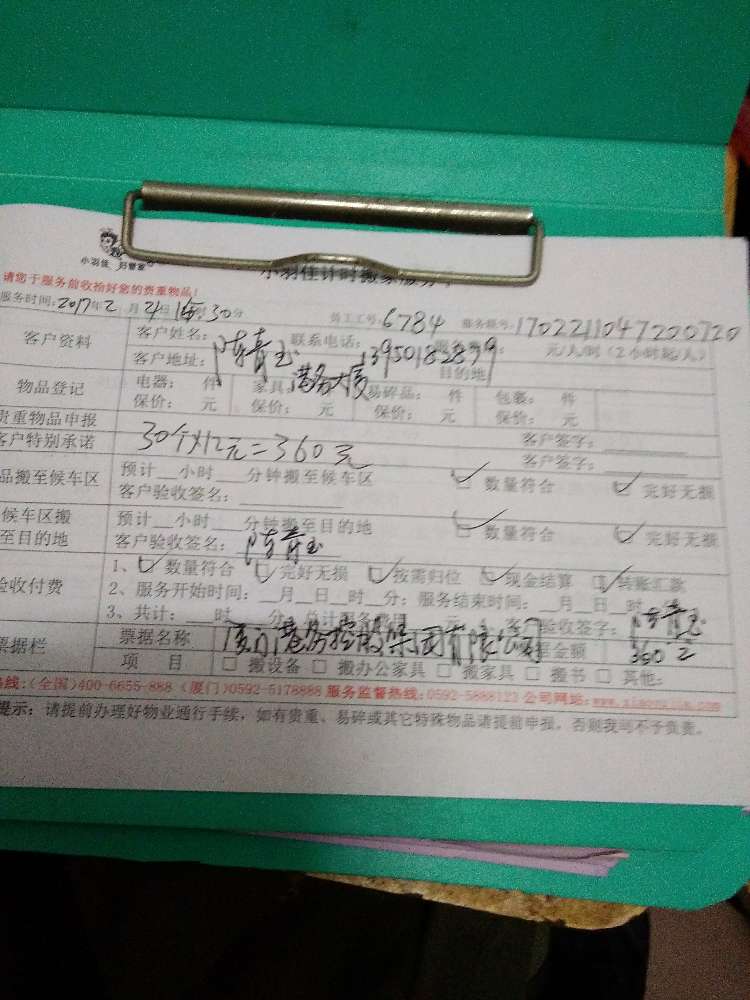 小羽佳 妇管家
小羽佳计时搬家服务
请您于服务前收拾好您的贵重物品!
服务时间:2017年2月 日 时30分 员工工号:6784 服务账号:1702211047200720
客户资料 客户姓名: 联系电话:13950182899 元/人/时(2小时起/人)
客户地址:港务大厦 目的地
物品登记 电器: 件 家具: 易碎品: 件 包装: 件
保价: 元 保价: 元 保价: 元 保价: 元
贵重物品申报 客户签字:
客户特别承诺 30个X12元=360元 客户签字:
品搬至候车区 预计__小时__分钟搬至候车区 ☑ 数量符合 ☑ 完好无损
客户验收签名:
候车区搬至目的地 预计__小时__分钟搬至目的地 ☑ 数量符合 ☑ 完好无损
客户验收签名:
验收付费 1、☑ 数量符合 ☑ 完好无损 ☑ 按需归位 ☑ 现金结算 ☑ 转账汇款
2、服务开始时间:__月__日__时__分;服务结束时间:__月__日__时
3、共计:__时__分;总计服务 验收签字:
票据栏 票据名称 厦门港务控股集团有限公司 金额 360元
项 目 □ 搬设备 □ 搬办公家具 □ 搬家具 □ 搬书 □ 其他:
热线:(全国)400-6655-888 (厦门)0592-5178888 服务监督热线:0592-5888123 公司网址:
提示:请提前办理好物业通行手续,如有贵重、易碎或其它特殊物品请提前申报,否则我司不予负责。